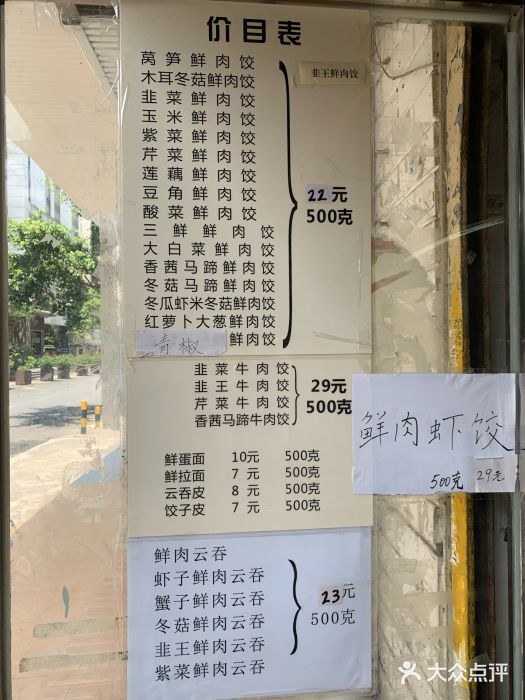 价目表
莴笋鲜肉饺
木耳冬菇鲜肉饺
韭菜鲜肉饺
玉米鲜肉饺
紫菜鲜肉饺
芹菜鲜肉饺
莲藕鲜肉饺
豆角鲜肉饺
酸菜鲜肉饺
三鲜鲜肉饺
大白菜鲜肉饺
香茜马蹄鲜肉饺
冬菇马蹄鲜肉饺
冬瓜虾米冬菇鲜肉饺
红萝卜大葱鲜肉饺
青椒鲜肉饺
韭王鲜肉饺
22元
500克
韭菜牛肉饺
韭王牛肉饺
芹菜牛肉饺
香茜马蹄牛肉饺
29元
500克
鲜蛋面 10元 500克
鲜拉面 7元 500克
云吞皮 8元 500克
饺子皮 7元 500克
鲜肉虾饺
500克 29元
鲜肉云吞
虾子鲜肉云吞
蟹子鲜肉云吞
冬菇鲜肉云吞
韭王鲜肉云吞
紫菜鲜肉云吞
23元
500克
大众点评